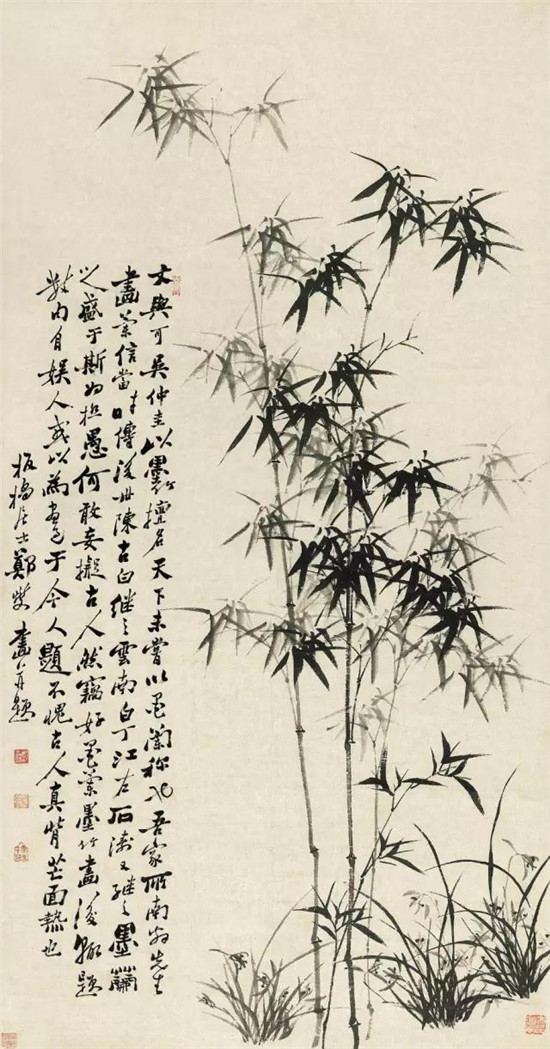 文與可吳仲圭以墨竹擅名天下未嘗以墨蘭稱也吾家所南翁先生
畫蘭信當時傳後世陳古白繼之雲南白丁江左石濤又繼之墨蘭
之盛于斯為極愚何敢妄擬古人然竊好墨蘭墨竹畫後輒題
數內自娛人或以為畫色于今人題不愧古人真背芒面熱也
板橋居士鄭燮畫并題